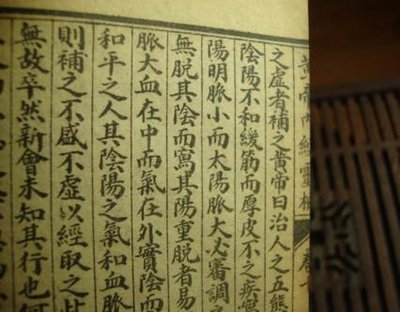 黃帝內經靈樞 卷十
之虛者補之黃帝曰治人之五態
陰陽不和緩筋而厚皮不之疾寫
陽明脈小而太陽脈大必審調
無脫其陰而寫其陽重脫者易
脈大血在中而氣在外實陰而
和平之人其陰陽之氣和血脈
則補之不盛不虛以經取之此
無故卒然新會未知其行也何